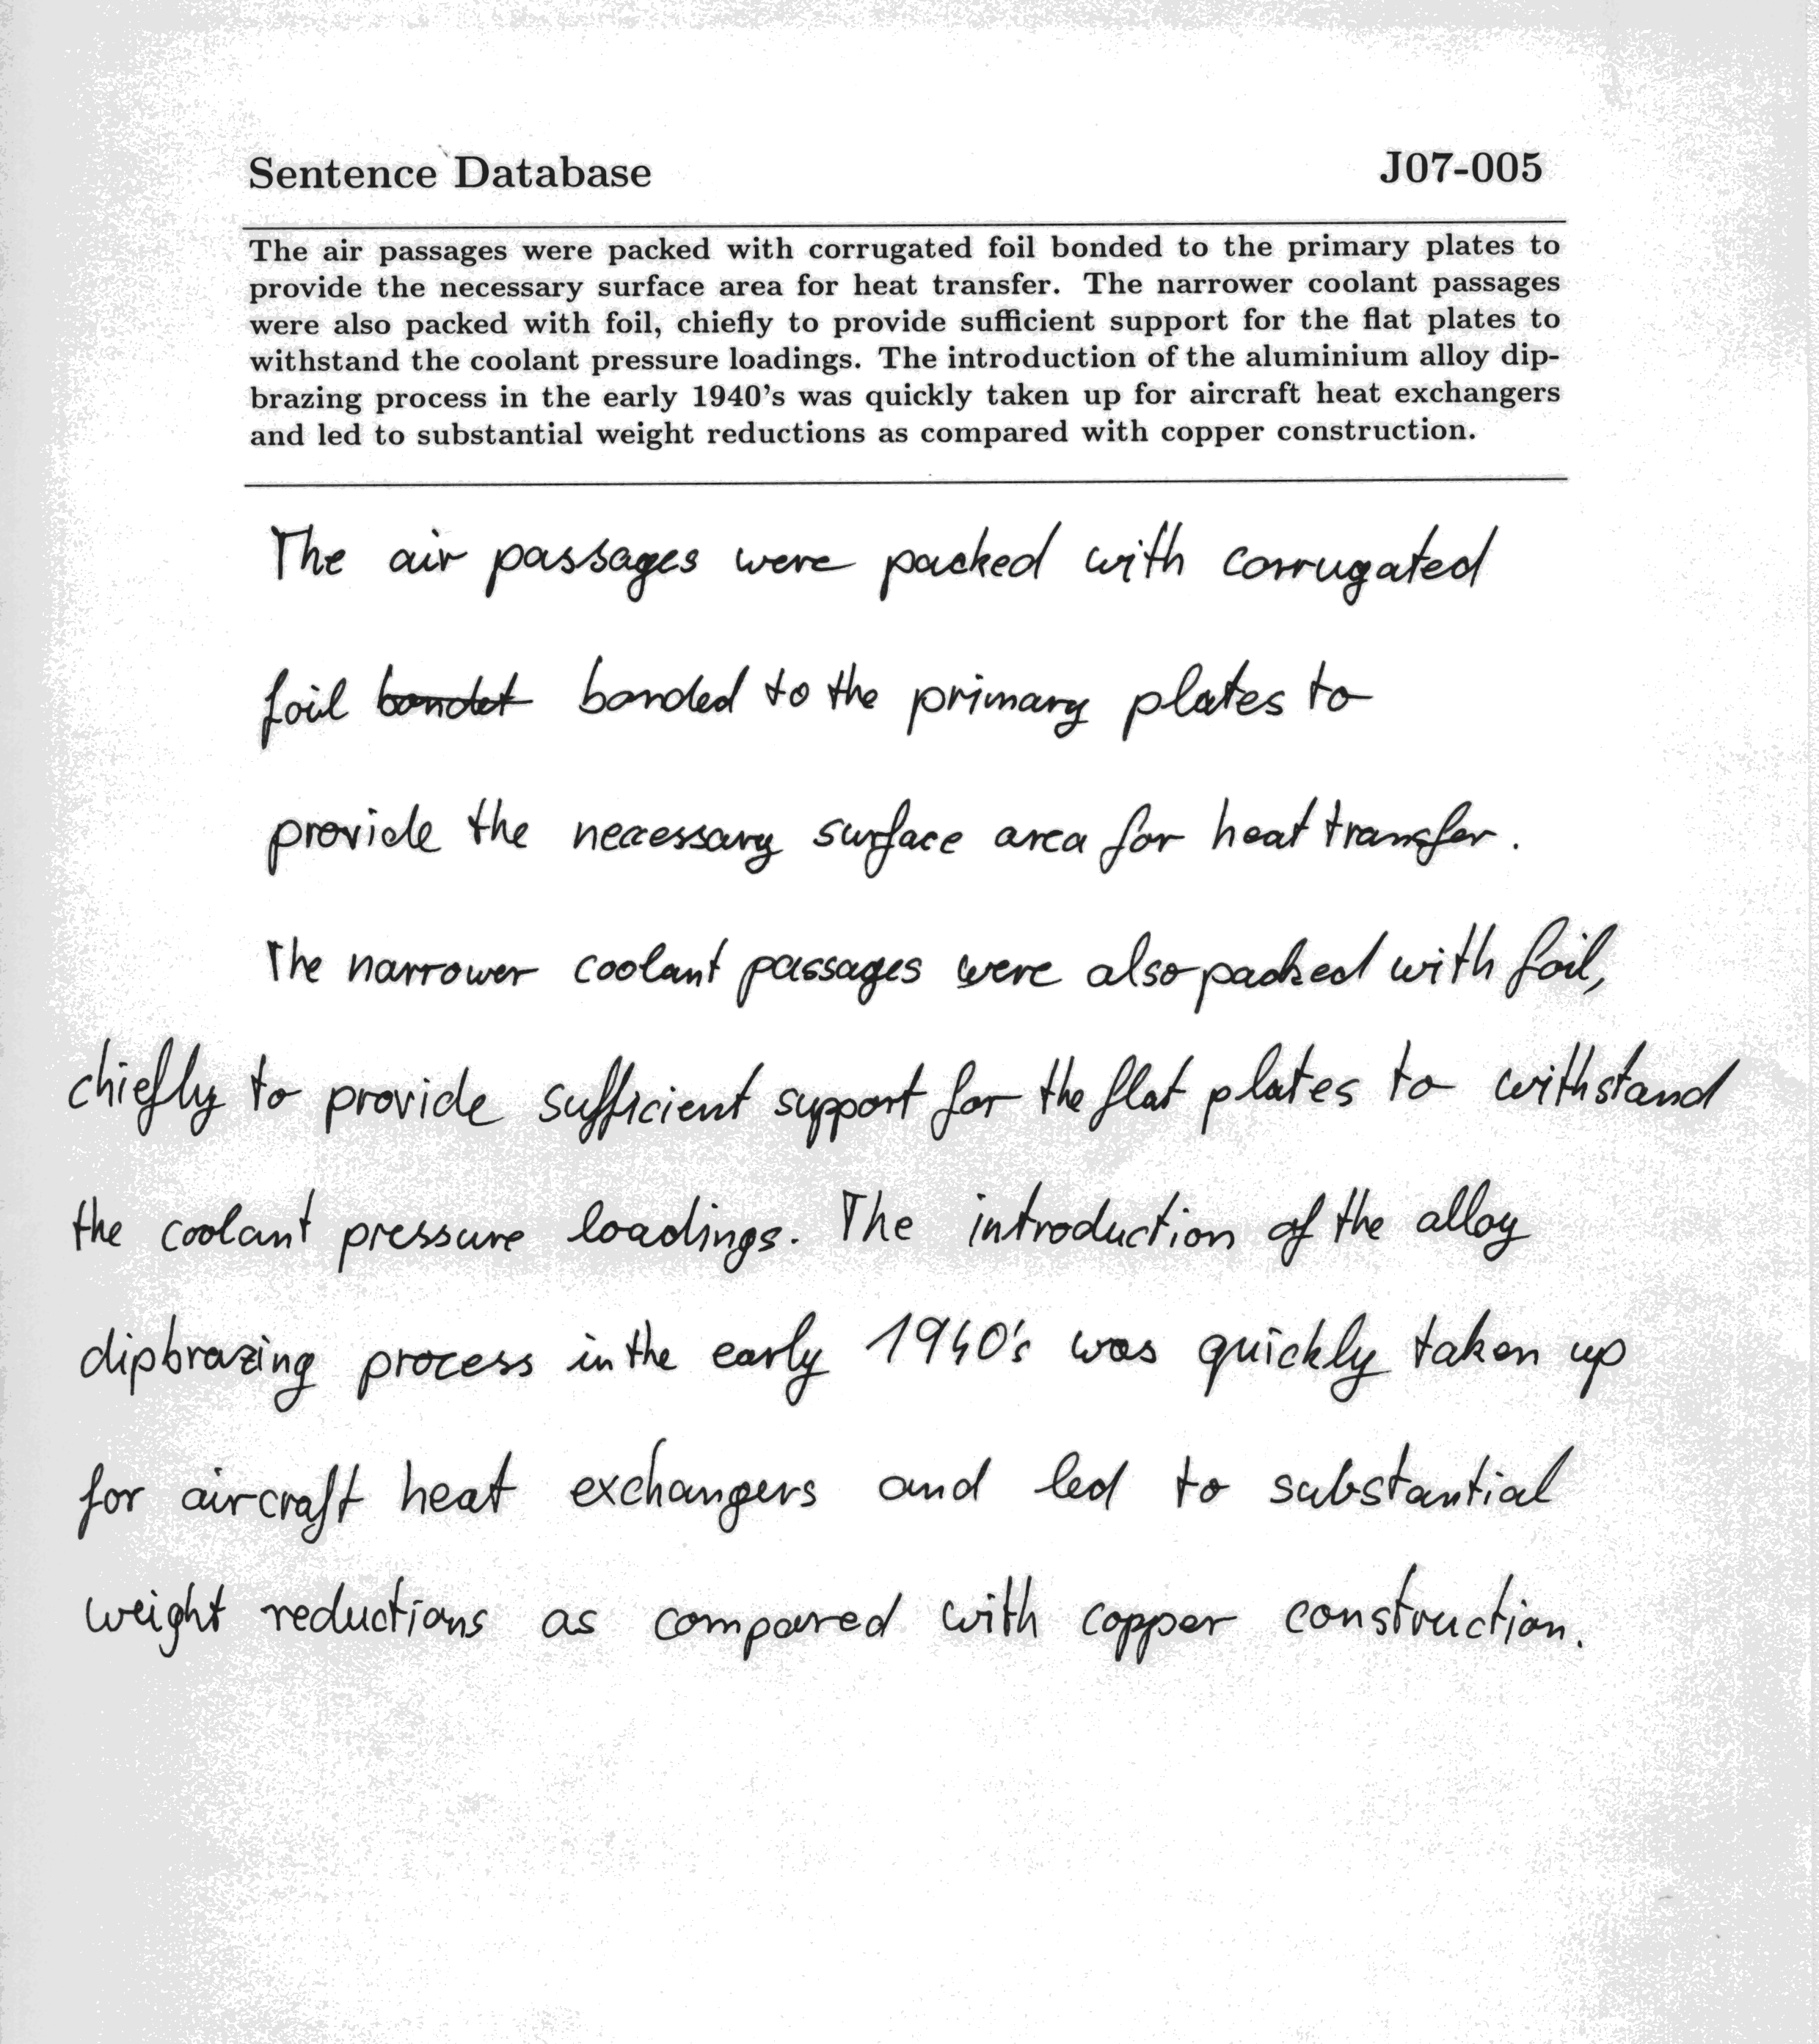 Sentence Database J07-005
The air passages were packed with corrugated foil bonded to the primary plates to
provide the necessary surface area for heat transfer. The narrower coolant passages
were also packed with foil, chiefly to provide sufficient support for the flat plates to
withstand the coolant pressure loadings. The introduction of the aluminium alloy dip-
brazing process in the early 1940's was quickly taken up for aircraft heat exchangers
and led to substantial weight reductions as compared with copper construction.
The air passages were packed with corrugated
foil bondet bonded to the primary plates to
provide the necessary surface area for heat transfer.
The narrower coolant passages were also packed with foil,
chiefly to provide sufficient support for the flat plates to withstand
the coolant pressure loadings. The introduction of the alloy
dipbrazing process in the early 1940's was quickly taken up
for aircraft heat exchangers and led to substantial
weight reductions as compared with copper construction.